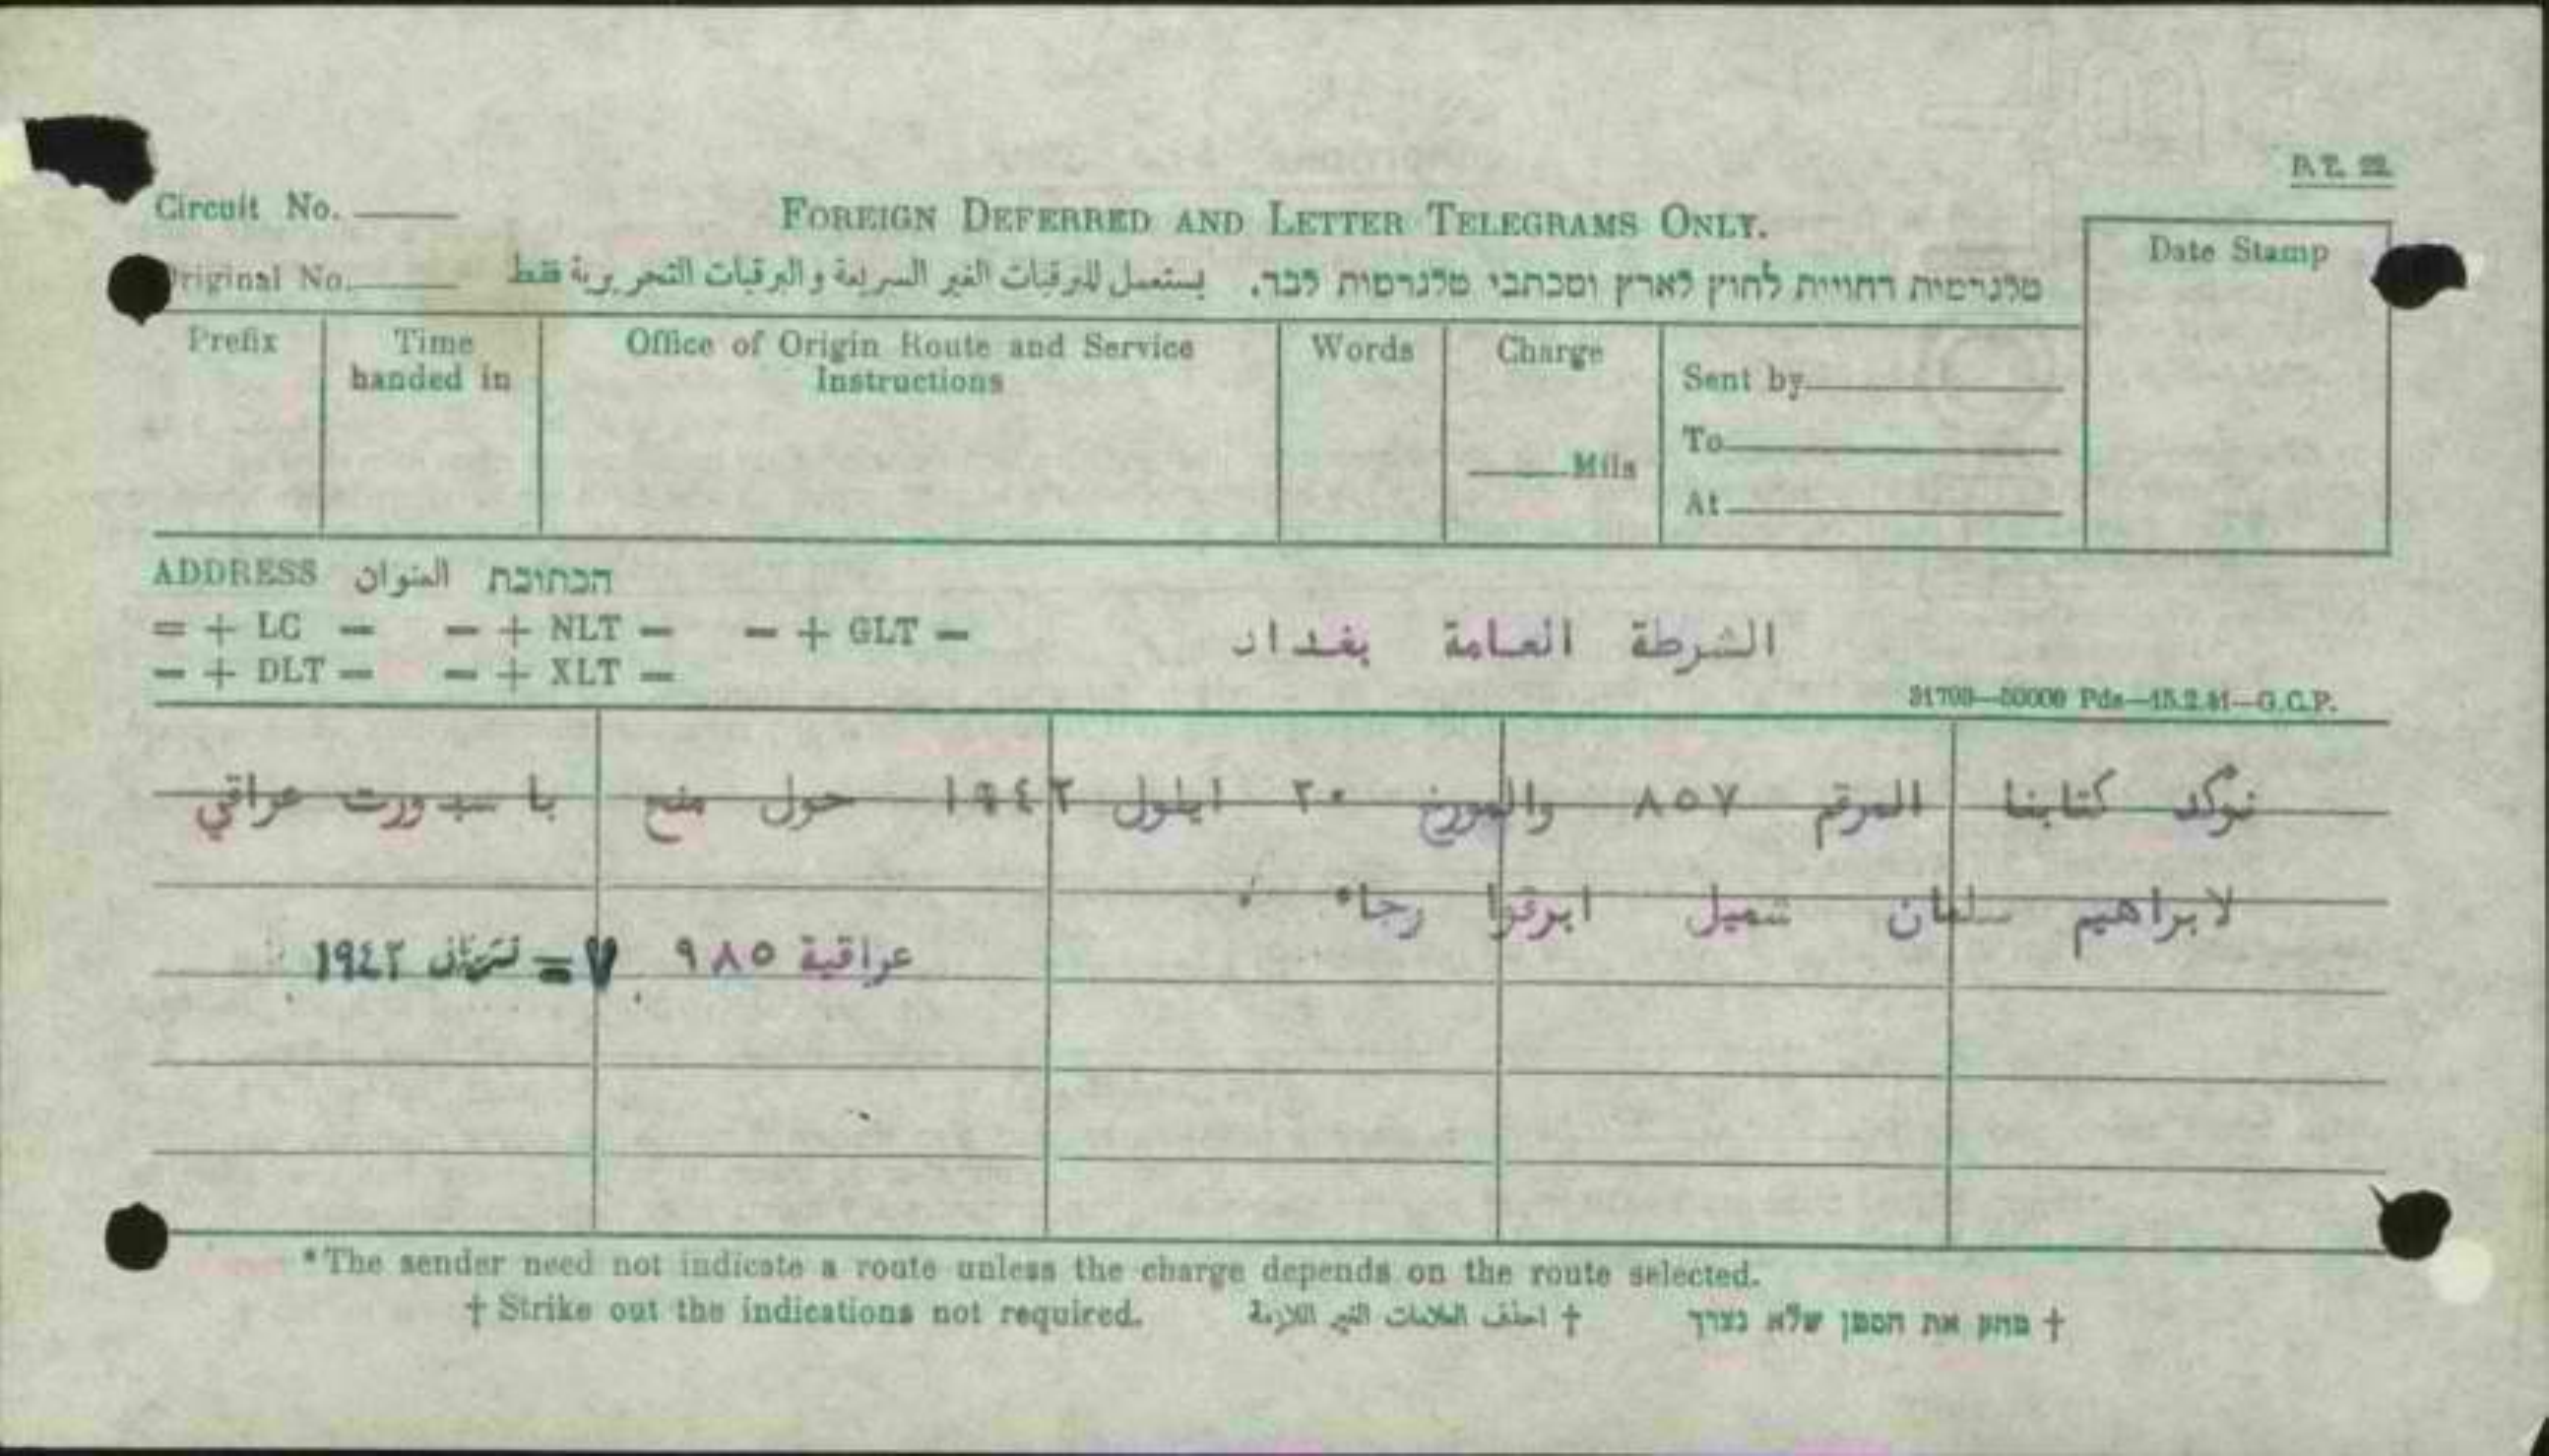 P.T. 22.
Circuit No.
FOREIGN DEFERRED AND LETTER TELEGRAMS ONLY.
Date Stamp
Original No.
يستعمل للبرقيات الغير السريعة والبرقيات التحريرية فقط
טלגרמות דחויות לחוץ לארץ ומכתבי טלגרמות לבד.
Prefix
Time handed in
Office of Origin Route and Service Instructions
Words
Charge
Mils
Sent by
To
At
ADDRESS العنوان הכתובת
= + LC — — + NLT — — + GLT —
— + DLT — — + XLT —
الشرطة العامة بغداد
31709—50000 Pds—15.2.41—G.C.P.
نوكد كتابنا المرقم ٨٥٧ والمورخ ٢٠ ايلول ١٩٤٢ حول منح با سبورت عراقي
لابراهيم سلمان شميل ابرقوا رجاء
عراقية ٩٨٥ ٧ = تشرين ١٩٤٢
*The sender need not indicate a route unless the charge depends on the route selected.
† Strike out the indications not required.
† احذف العلامات الغير اللازمة
† מחק את הסמן שלא נצרך